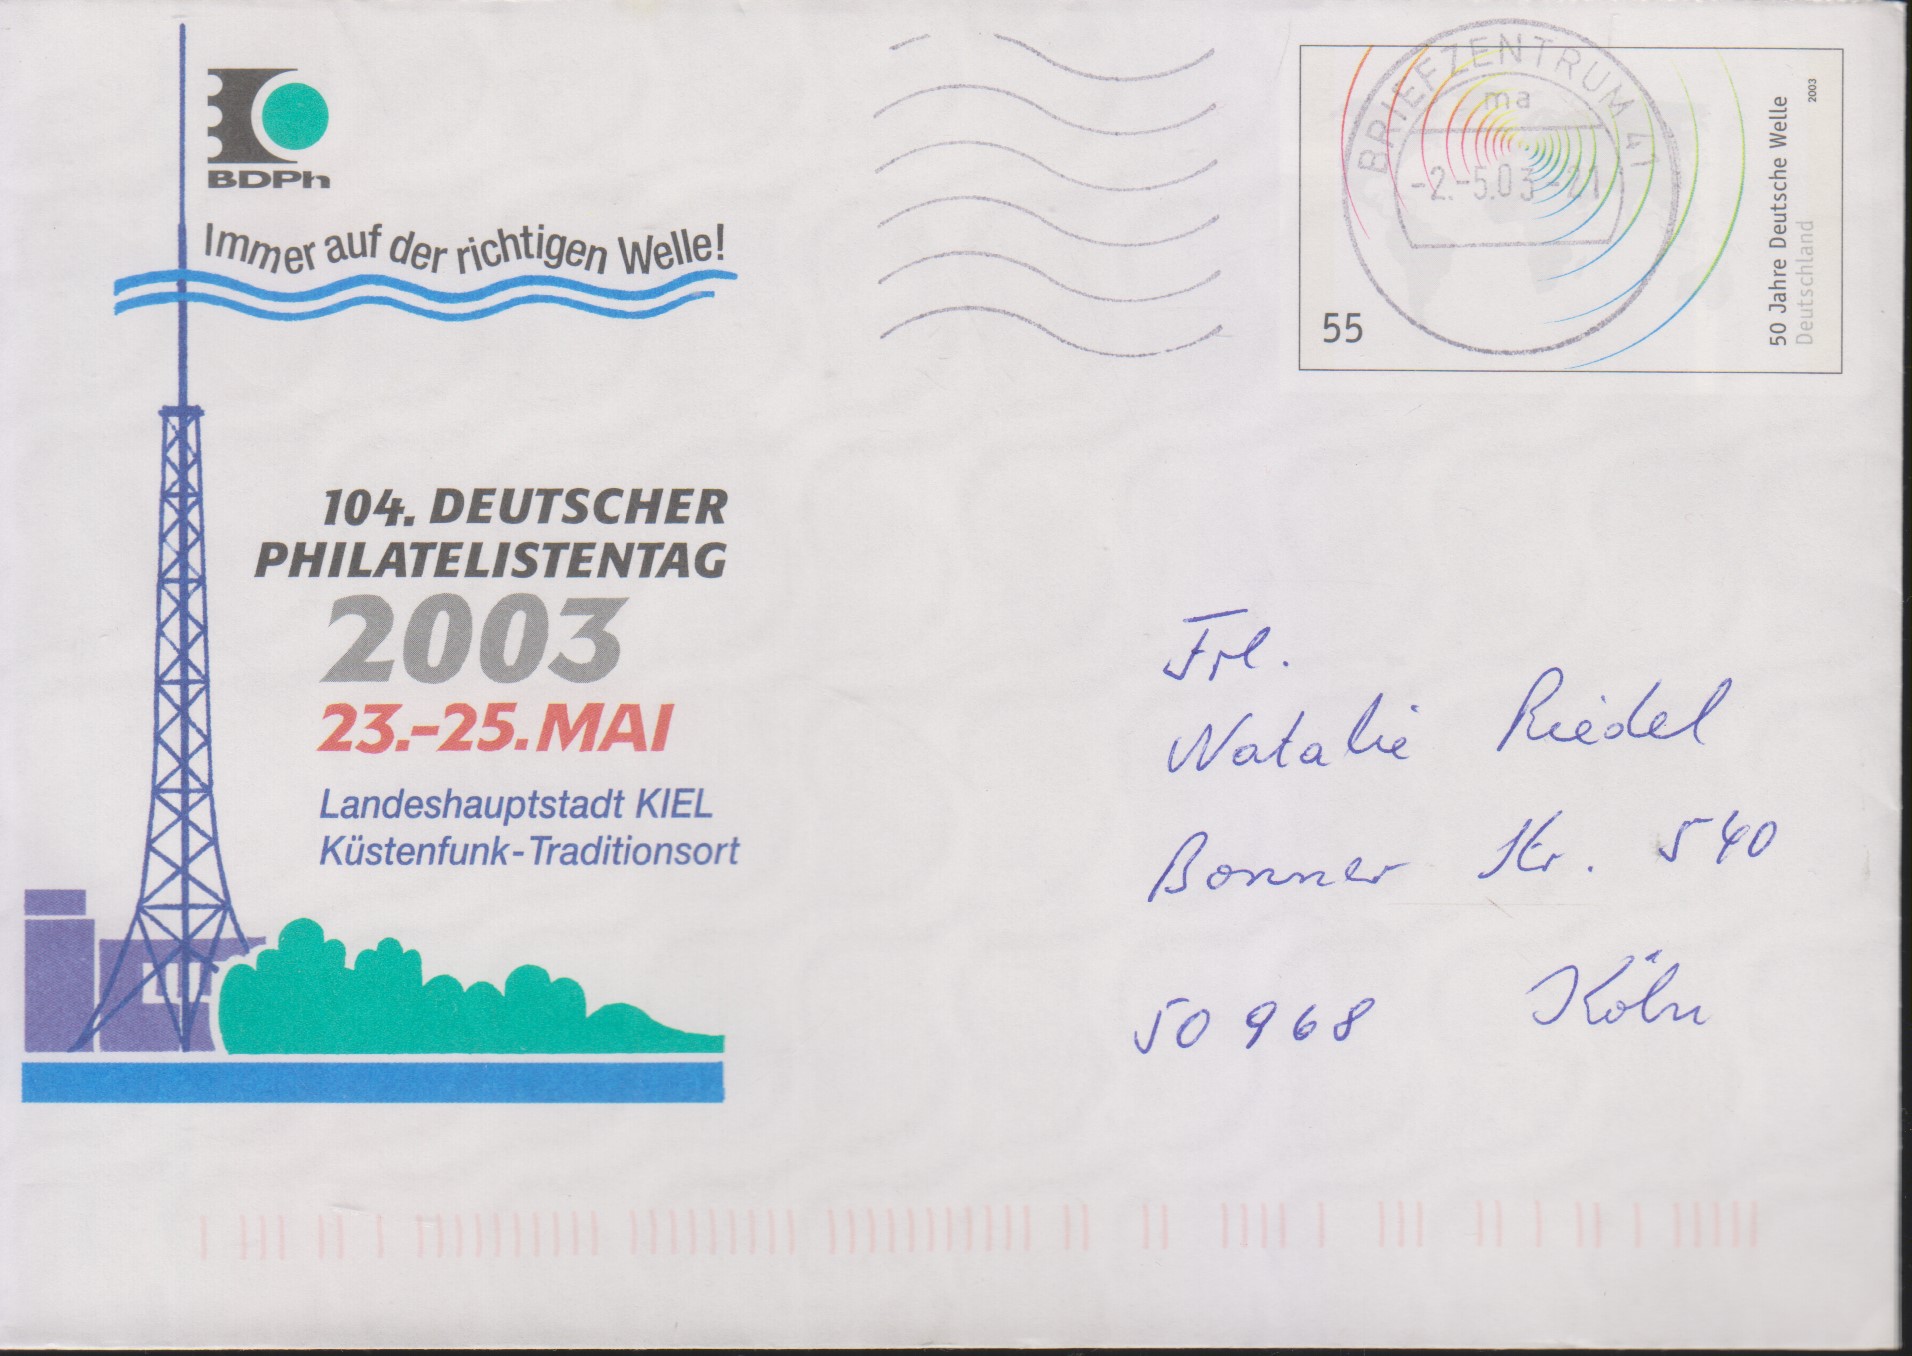 BDPh
Immer auf der richtigen Welle!
104. DEUTSCHER
PHILATELISTENTAG
2003
23.-25. MAI
Landeshauptstadt KIEL
Küstenfunk-Traditionsort
BRIEFZENTRUM 41
ma
-2.-5.03-21
55
50 Jahre Deutsche Welle
Deutschland
2003
Frl.
Natalie Riedel
Bonner Str. 540
50968 Köln